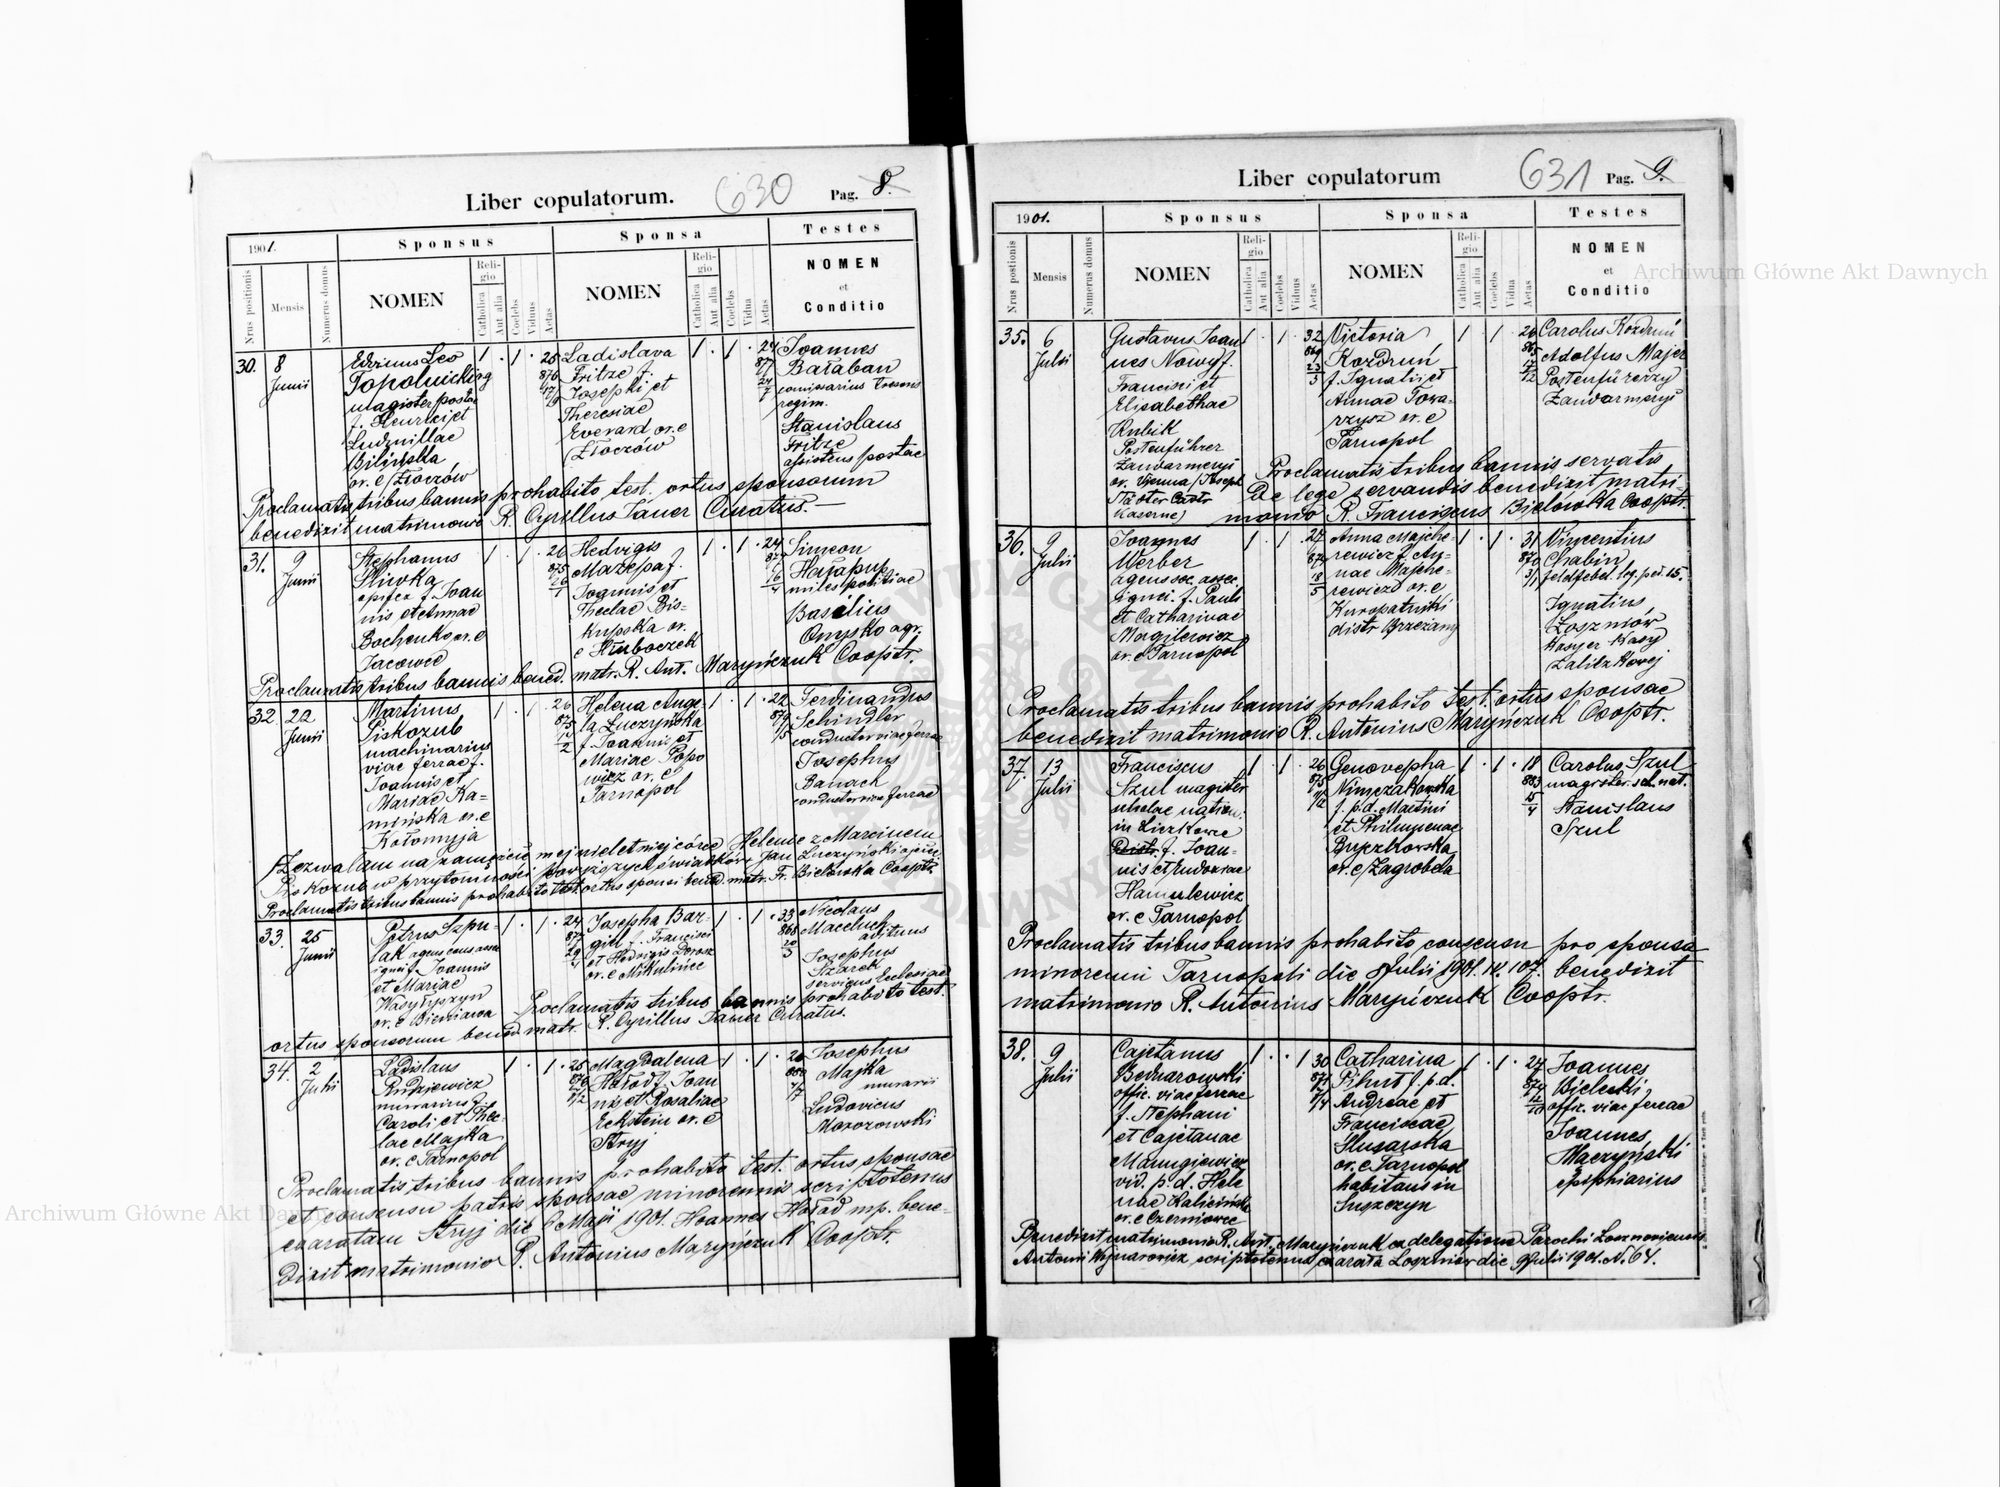 Liber copulatorum. 630 Pag. 8.
1901. Sponsus Sponsa Testes
Nrus positionis Mensis Numerus domus NOMEN Religio Catholica Aut alia Coelebs Viduus Aetas NOMEN Religio Catholica Aut alia Coelebs Vidua Aetas NOMEN et Conditio
30. 8 Junii
Leo
Topolnicki
magister postae
f. Henrici et
Ludmillae
Bilińska
or. e Złoczów
1 . 1 . 25
876
17/9
Ladislava
Fritze f.
Josephi et
Theresiae
Everard or. e
Złoczów
1 . 1 . 24
877
24/7
Joannes
Bałaban
regim.
Stanislaus
Fritze
assistens postae
Proclamatis tribus bannis prohabito test. ortus sponsorum
benedixit matrimonio R. Cyrillus Jauer Curatus.—
31. 9 Junii
Stephanus
Śliwka
opifex f. Joan
nis et Annae
Bochenko or. e
Jacowce
1 . 1 . 26
875
26/1
Hedvigis
Mazepa f.
Joannis et
Theclae Bis-
kupska or.
e Hłuboczek
1 . 1 . 24
877
16/4
Simeon
Hałapup
miles politiae
Basilius
Onysko agr.
Proclamatis tribus bannis bened. matr. R. Ant. Maryńczuk Cooptr.
32. 22 Junii
Martinus
Piskozub
machinarius
viae ferrae f.
Joannis et
Mariae Ka=
mińska or. e
Kołomyja
1 . 1 . 26
875
Helena Ange-
la Łuczyńska
f. Joannis et
Mariae Popo
wicz or. e
Tarnopol
1 . 1 . 22
879
1/5
Ferdinandus
Schindler
conductor viae ferrae
Josephus
Banach
conductor viae ferrae
Zezwalam na zamęście mej nieletniej córce Helenie z Marcinem
Piskozub w przytomności powyższych świadków Jan Łuczyński ojciec
Proclamatis tribus bannis prohabito test. ortus sponsi bened. matr. Fr. Bielówka Cooptr.
33. 25 Junii
Petrus Szpu-
lak agens cus. assec.
ignif. f. Joannis
et Mariae
Wasyłyszyn
or. e Bieniawa
1 . 1 . 24
877
29/4
Josepha Bar-
giel f. Francisci
et Hedvigis Derosz
or. e Mikulińce
1 . 1 . 33
868
20/3
Nicolaus
Maceluch
Josephus
Szarek
servicus Ecclesiae
Proclamatis tribus bannis prohabito test.
ortus sponsorum bened. matr. R. Cyrillus Jauer Curatus.
34. 2 Julii
Ladislaus
Rudziewicz
murarius f.
Caroli et Thec-
lae Majka
or. e Tarnopol
1 . 1 . 25
876
Magdalena
Hołod f. Joan
nis et Rosaliae
Eckstein or. e
Stryj
1 . 1 . 20
880
Josephus
Majka
murarii
Ludovicus
Morozowski
Proclamatis tribus bannis prohabito test. ortus sponsae
et consensu patris sponsae minorennis scriptotenus
exaratam Stryj die 6 Maji 1901. Hoannes Hołod mp. bene-
dixit matrimonio R. Antonius Maryńczuk Cooptr.
Liber copulatorum 631 Pag. 9.
1901. Sponsus Sponsa Testes
Nrus positionis Mensis Numerus domus NOMEN Religio Catholica Aut alia Coelebs Viduus Aetas NOMEN Religio Catholica Aut alia Coelebs Vidua Aetas NOMEN et Conditio
35. 6 Julii
Gustavus Joan
nes Nowy f.
Francisci et
Elisabethae
Kubik
Postenführer
Żandarmeryi
or. Vienna (Joseph
Kaserne)
1 . 1 . 32
869
23/3
Victoria
Kozdruń
f. Ignatii et
Annae Towa-
rzysz or. e
Tarnopol
1 . 1 . 26
865
17/12
Carolus Kozdruń
Adolfus Majer
Postenfürerzy
Żandarmeryi
Proclamatis tribus bannis servatis
de lege servandis benedixit matri-
monio R. Franciscus Bielówka Cooptr.
36. 9 Julii
Joannes
Werber
agens soc. assec.
ignei. f. Pauli
et Catharinae
Magilewicz
or. e Tarnopol
1 . 1 . 27
874
18/5
Anna Majche-
rewicz f. An-
nae Majche-
rewicz or. e
Kuropatniki
distr Brzeżany
1 . 1 . 31
870
3/1
Vincentius
Chabin
feldfebel leg. ped. 15.
Ignatius
Łoszniów
Kasyer Kasy
Zaliczkowej
Proclamatis tribus bannis prohabito test. ortus sponsae
benedixit matrimonio R. Antonius Maryńczuk Cooptr.
37. 13 Julii
Franciscus
Szul magister
scholae nation.
in Liczkowce
f. Joan-
nis et Eudoxiae
Hamulewicz
or. e Tarnopol
1 . 1 . 26
875
1/12
Genovepha
Nimczakowska
f. p. d. Martini
et Philumenae
Bryczkowska
or. e Zagrobela
1 . 1 . 18
883
15/4
Carolus Szul
magister. sch. nat.
Stanislaus
Szul
Proclamatis tribus bannis prohabito consensu pro sponsa
minorenni Tarnopoli die 8 Julii 1901. N. 107. benedixit
matrimonio R. Antonius Maryńczuk Cooptr.
38. 9 Julii
Cajetanus
Bednarowski
offic. viae ferrae
f. Stephani
et Cajetanae
Manugiewicz
vid. p. d. Hele
nae Halicińska
or. e Czerniowce
1 . . 1 30
871
7/4
Catharina
Pihut f. p. d.
Andreae et
Franciscae
Slusarska
or. e Tarnopol
habitans in
Suszczyn
1 . 1 . 27
874
12/10
Joannes
Bielecki
offic. viae ferrae
Joannes
Mączyński
epiphiarius
Benedixit matrimonio R. Ant. Maryńczuk ex delegatione Parochi Łosznioviensis
Antonii Wojnarowicz scriptotenus exarata Łoszniów die 9 Julii 1901. N. 64.
Archiwum Główne Akt Dawnych
Archiwum Główne Akt Dawnych